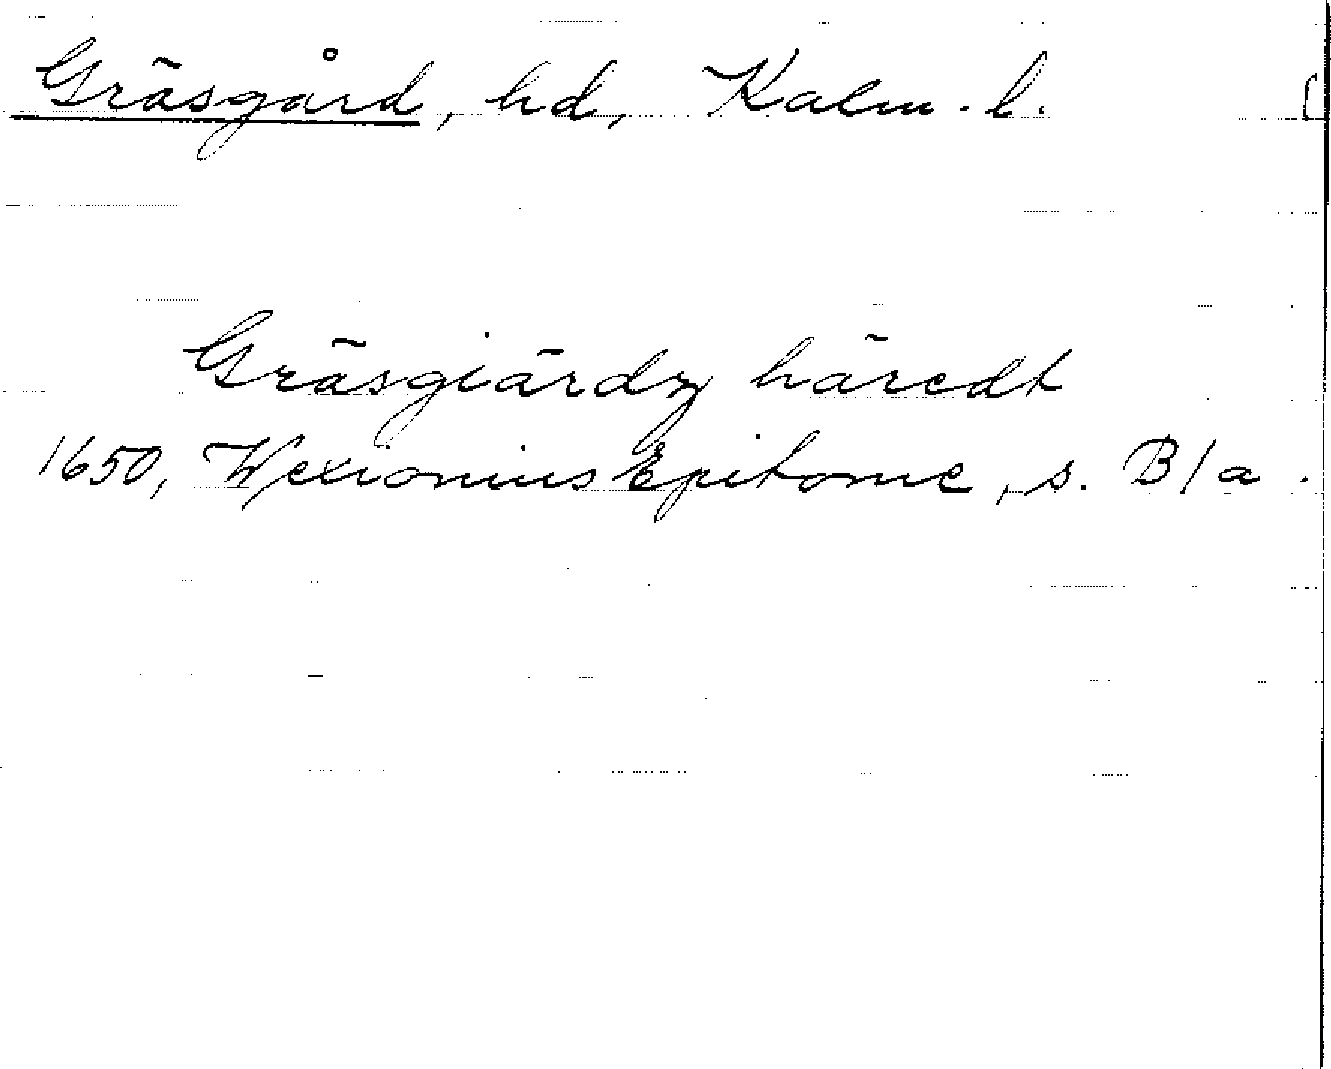 Gräsgård, hd, Kalm. l.
Gräsgiärdz häredt
1650, Wexionius Epitome, s. B/a.